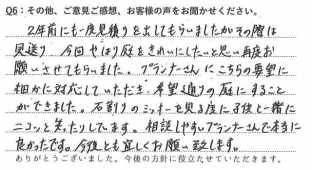 Q6：その他、ご意見ご感想、お客様の声をお聞かせください。
2年前にも一度見積りを出してもらいましたがその際は
見送り 今回やはり庭をきれいにしたいと思い再度お
願いさせてもらいました。プランナーさんにこちらの要望に
親かに対応していただき、希望通りの庭にすること
ができました。石割りのミッキーを見る度に子供と一緒に
ニコッと笑ったりしています。相談しやすいプランナーさんで本当に
良かったです。今後とも宜しくお願い致します。
ありがとうございました。今後の方針に役立たせていただきます。